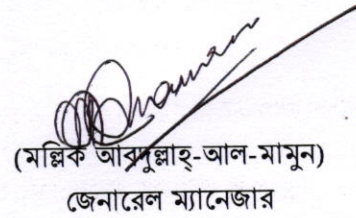 (মল্লিক আবদুল্লাহ্-আল-মামুন)
জেনারেল ম্যানেজার